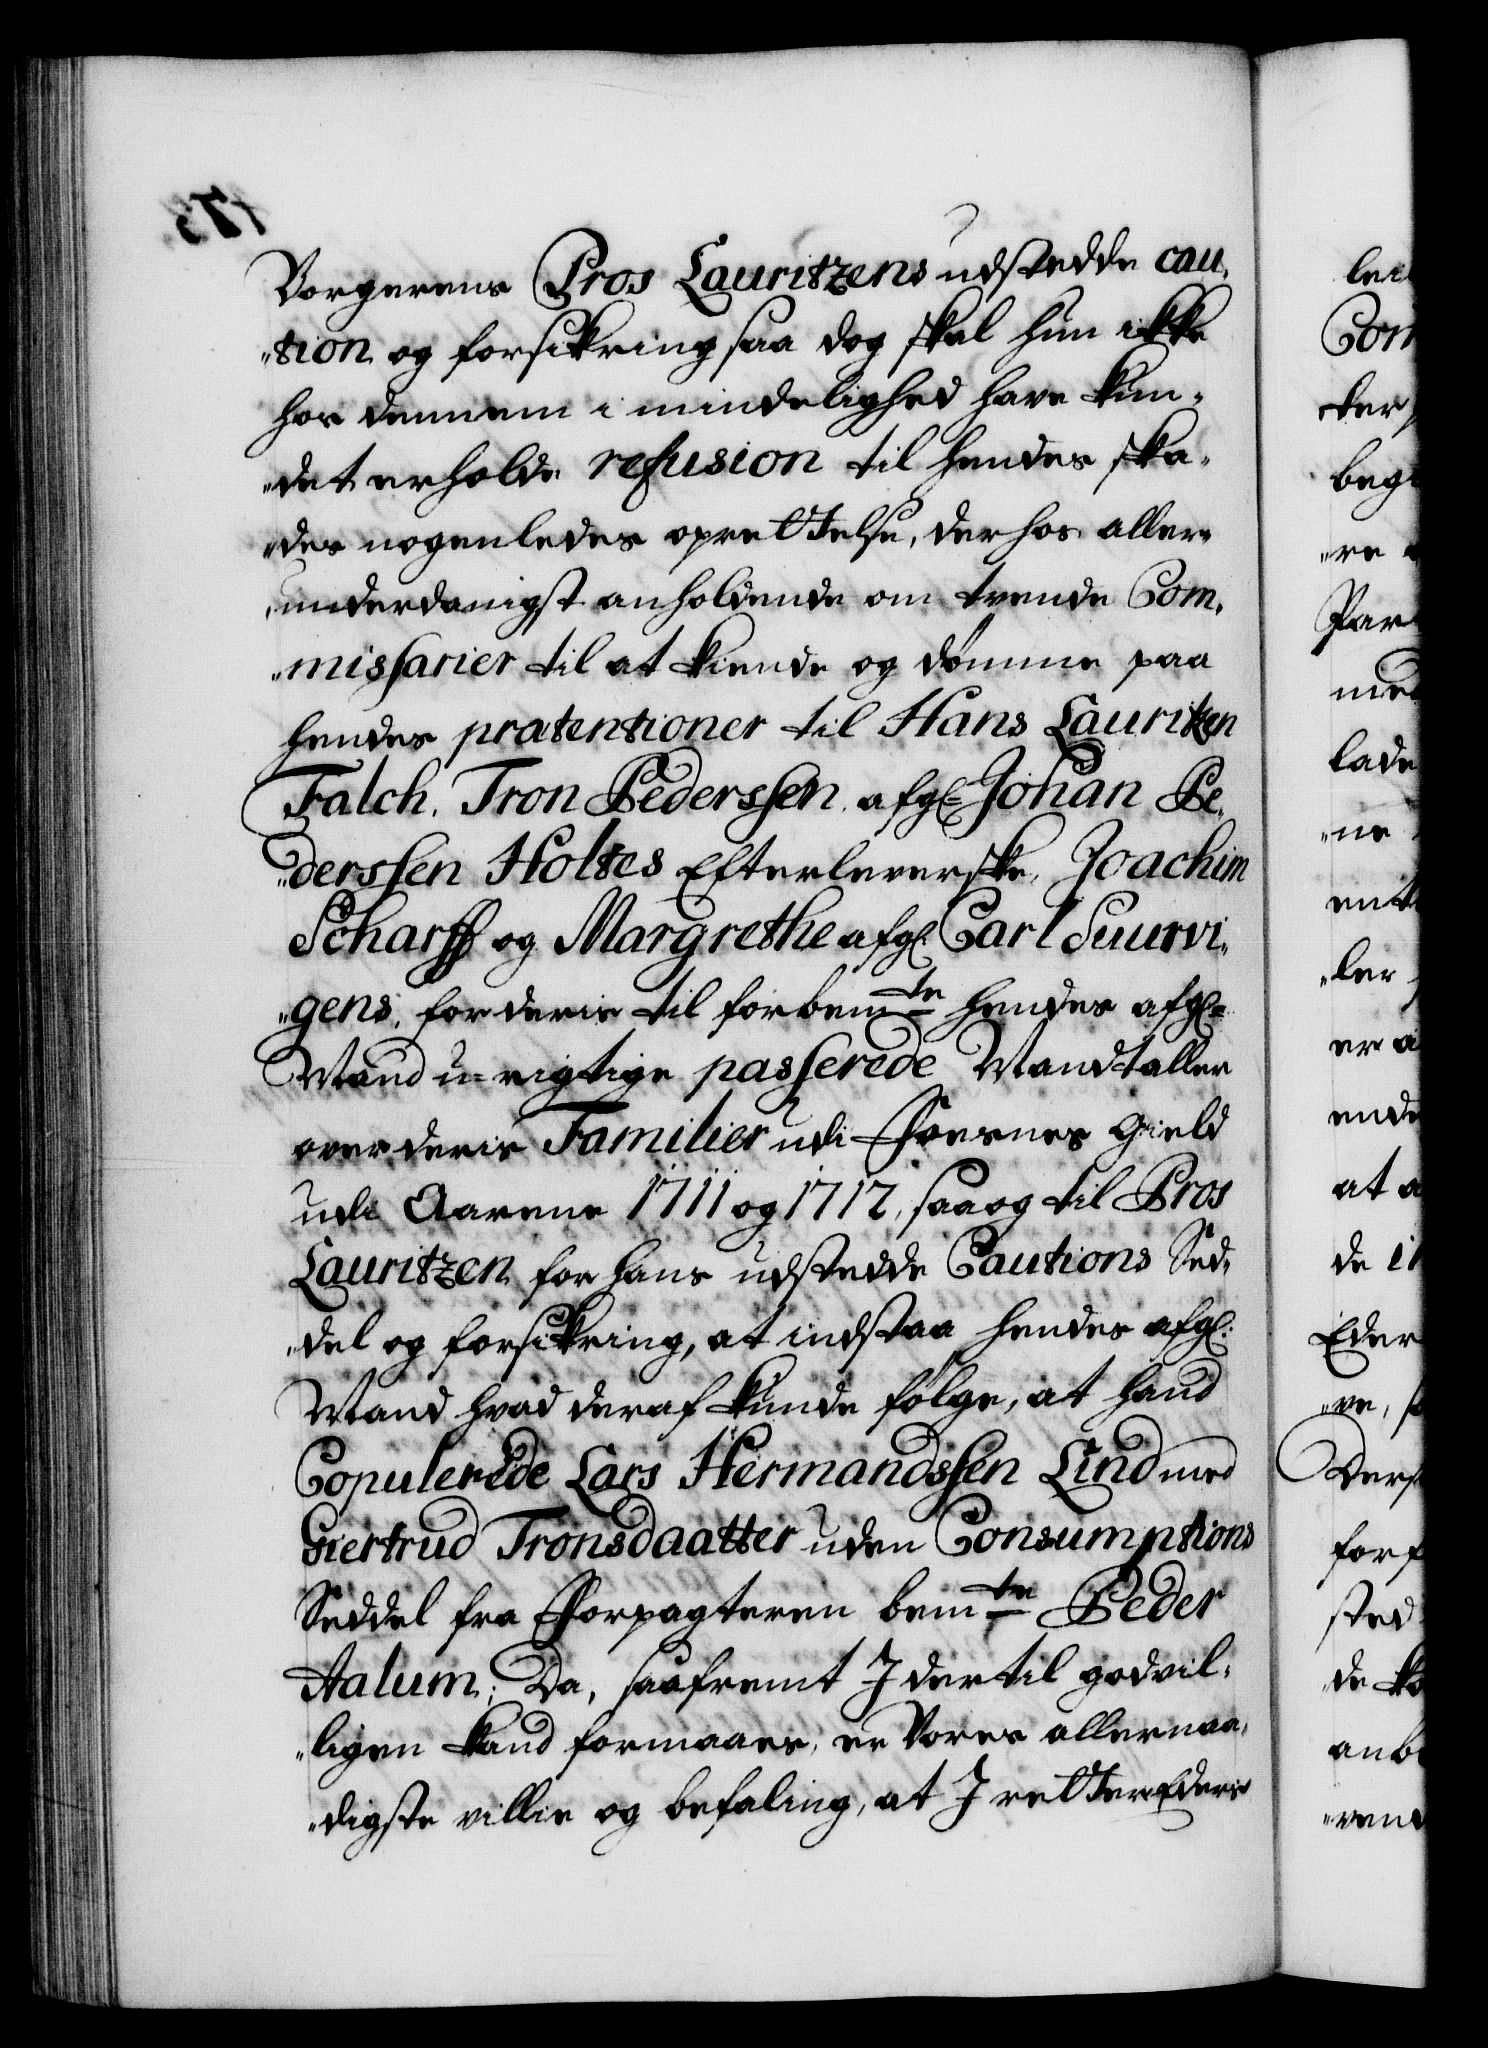 Borgerens Pros Lauritzens udstedde cau„
„tion og forsikring saa dog skal hun ikke
hos dennem i mindelighed have kun„
„det erholde refusion til hendes ska„
„des nogenledes oprettelse, derhos aller„
„underdanigst anholdende om trende Com„
„missarier til at kiende og dømme paa
hendes prætentioner til Hans Lauritzen
Falch, Tron Pederssen, afgl= Johan Pe„
„derssen Holtes Efterleverske, Joachim
Scharff og Margrethe afgl: Carl Suurvi„
„gens, for deris til forbemte hendes afgl=
Mand u-rigtige passerede Mandtaller
over deris Familier udi Foesnes Gield
udi Aarene 1711 og 1712, saa og til Pros
Lauritzen for hans udstedde Cautions Sed„
„del og forsikring, at indstaa hendes afgl:
Mand hvad deraf kunde følge, at hand
Copulerede Lars Hermandssen Lind med
Giertrud Tronsdaatter uden Consumptions
Seddel fra Forpagteren bemte Peder
Aalum; Da, saafremt I dertil godvil„
„ligen kand formaaes, er Vores allernaa„
„digste villie og befaling, at I retter Ederis